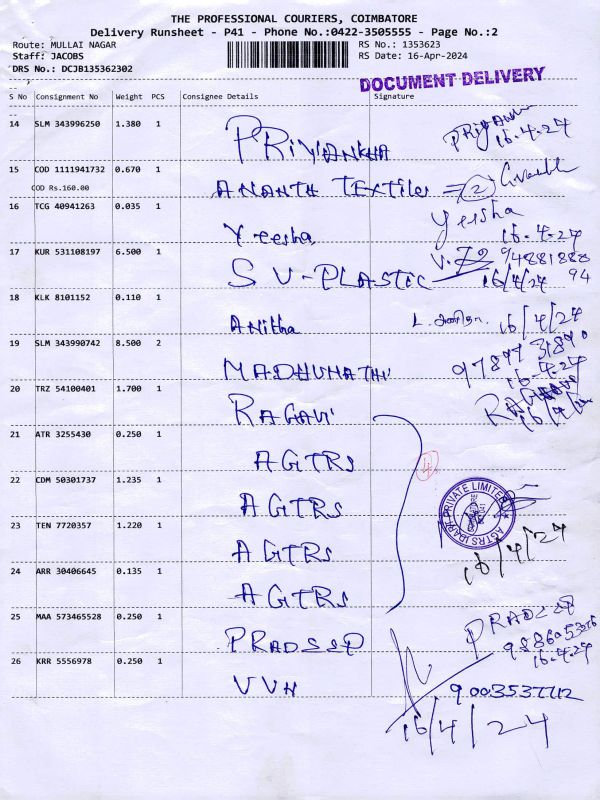 THE PROFESSIONAL COURIERS, COIMBATORE
Delivery Runsheet - P41 - Phone No.:0422-3505555 - Page No.:2
Route: MULLAI NAGAR RS No.: 1353623
Staff: JACOBS RS Date: 16-Apr-2024
DRS No.: DCJB135362302
DOCUMENT DELIVERY
S No Consignment No Weight PCS Consignee Details Signature
14 SLM 343996250 1.380 1 PRIYANKHA
16-4-24
15 COD 1111941732 0.670 1 ANANTH TEXTILES = 2
COD Rs.160.00
16 TCG 40941263 0.035 1 Yeesha Yeesha
16-4-24
17 KUR 531108197 6.500 1 S V-PLASTIC
16/4/24 94
18 KLK 8101152 0.110 1 Anitha 16/4/24
19 SLM 343990742 8.500 2 MADHUMATHI
16-4-24
20 TRZ 54100401 1.700 1 RAGAVI
21 ATR 3255430 0.250 1 AGTRS
4
22 CDM 50301737 1.235 1 AGTRS
23 TEN 7720357 1.220 1 AGTRS
16/4/24
24 ARR 30406645 0.135 1 AGTRS
25 MAA 573465528 0.250 1 PRADEEP PRADEEP
16-4-24
26 KRR 5556978 0.250 1 VVH
16/4/24